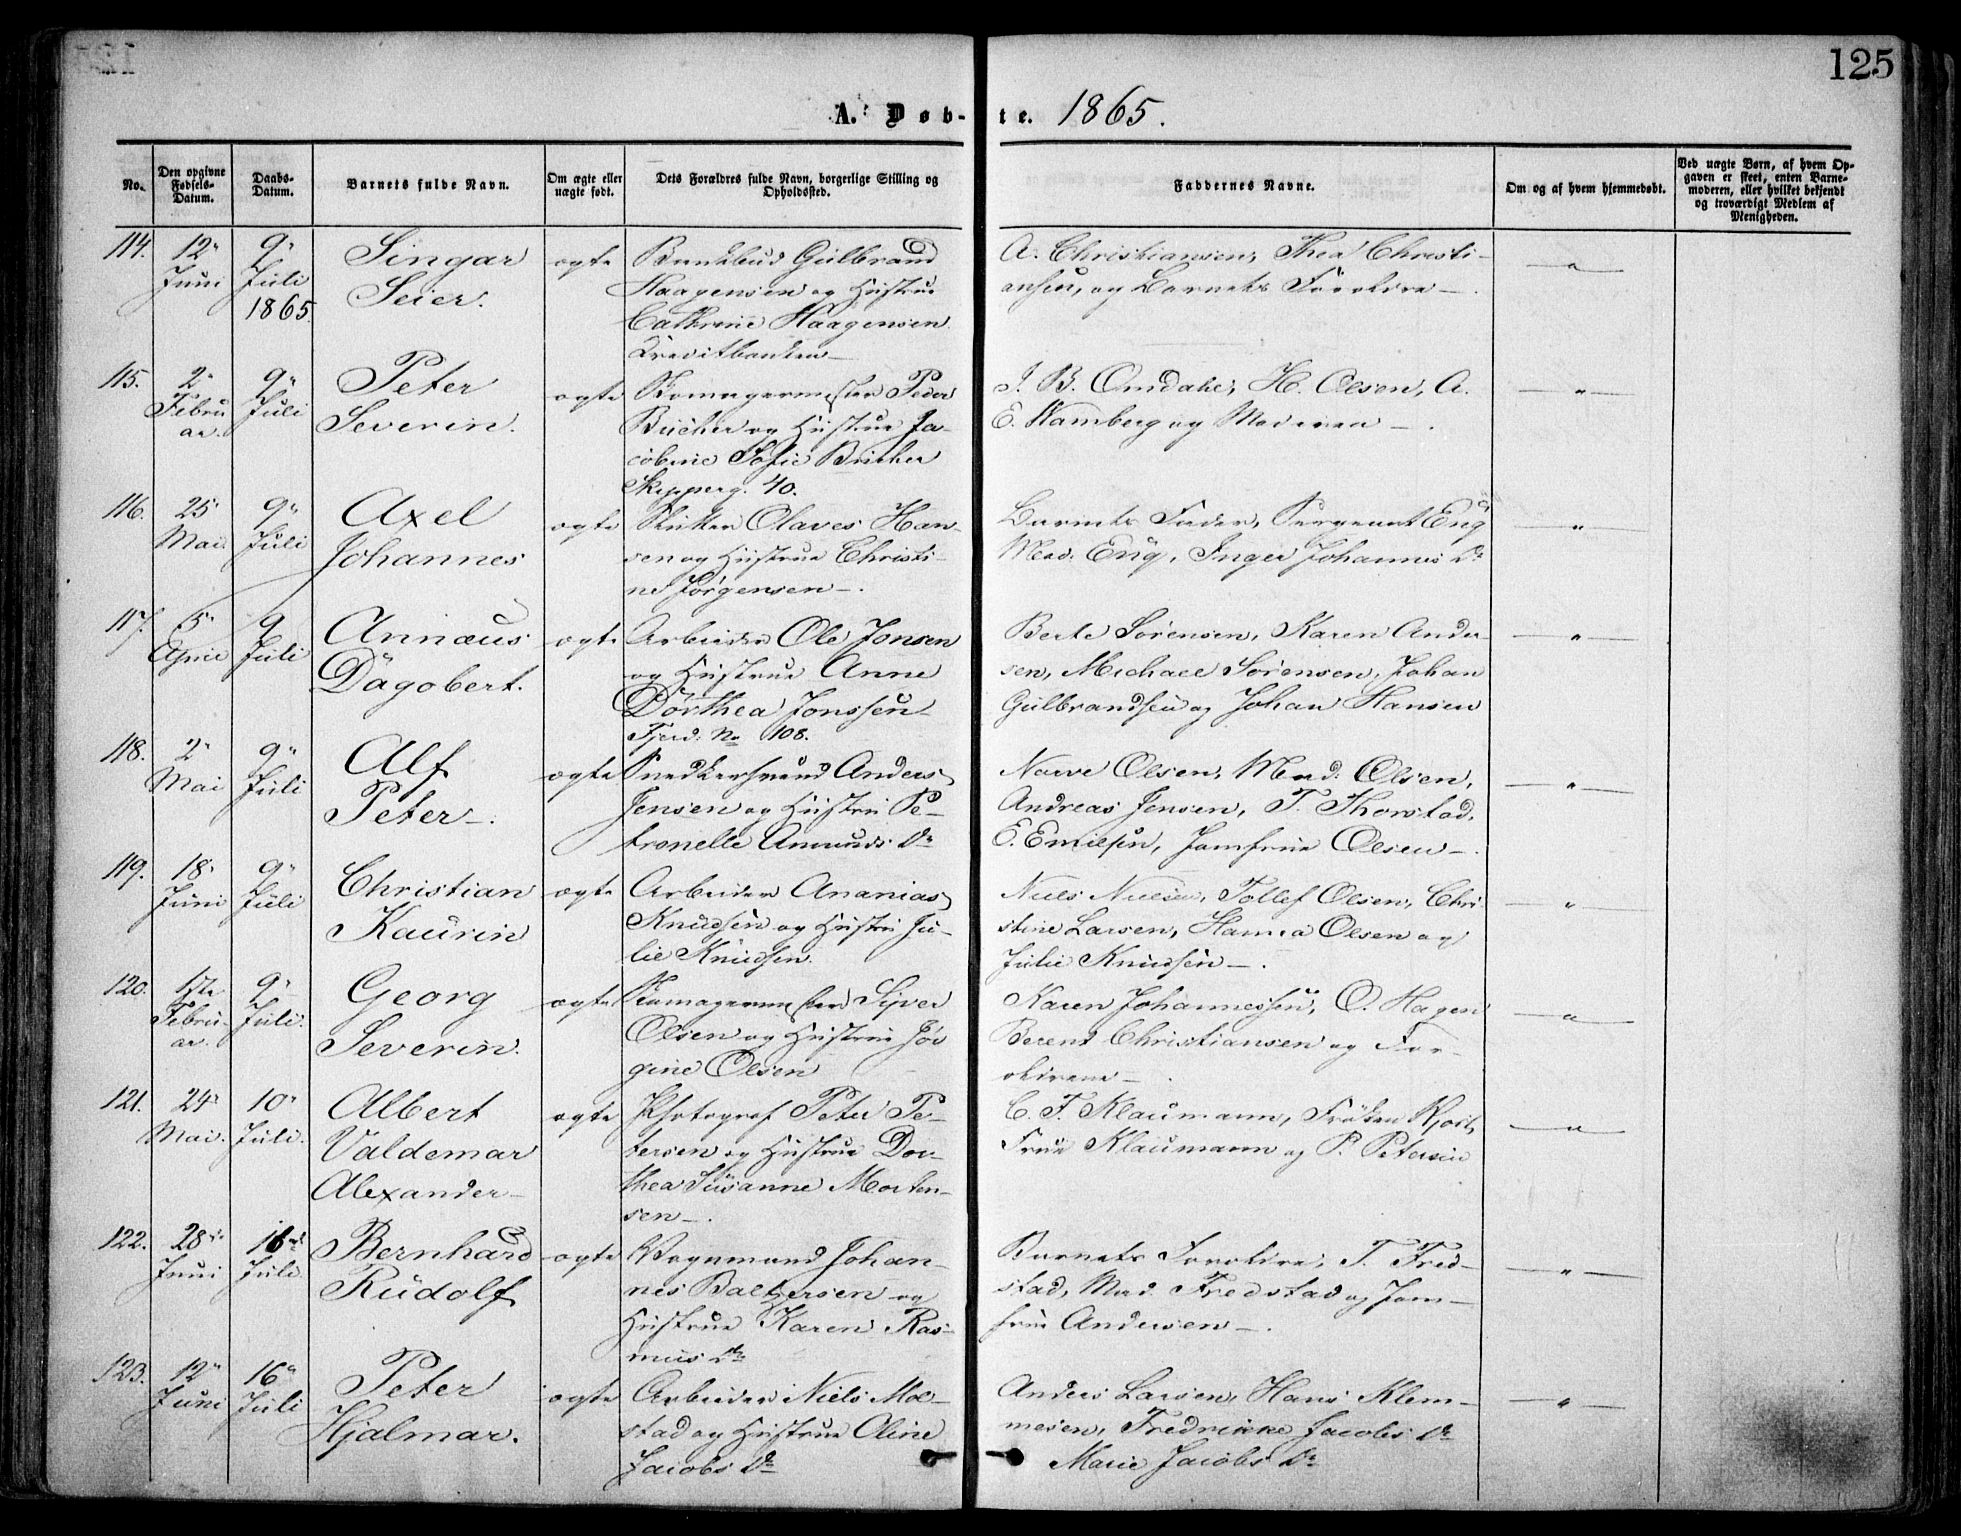 125
A. Døb-te. 1865.
No.
Den opgivne Fødsels-Datum.
Daabs-Datum.
Barnets fulde Navn.
Om ægte eller uægte født.
Dets Forældres fulde Navn, borgerlige Stilling og Opholdssted.
Faddernes Navne.
Om og af hvem hjemmedøbt.
Ved uægte Børn, af hvem Opgaven er skeet, enten Barnemoderen, eller hvilket bekjendt og troværdigt Medlem af Menigheden.
114. 12" Juni 9" Juli 1865. Singar Seier. ægte
Bankbud Gulbrand
Haagensen og Hustrue
Cathrine Haagensen
Kreditbanken
A. Christiansen, Thea Christi-
ansen, og Barnets Forældre
115. 2" Februar. 9" Juli Peter Severin. ægte
Skomagermester Peder
Bücher og Hustrue Ja-
cobine Sofie Bücher
Skipperg. 40.
J. B. Omdahl, H. Olsen, A.
E. Wamberg og Moderen
116. 25" Mai 9" Juli Axel Johannes ægte
Olaves Han-
sen og Hustrue Christi-
ne Jørgensen
Barnets Fader, Sergeant Eng
Mad. Eng, Inger Johannes Dr
117. 5" April 9 Juli Annæus Dagobert. ægte
Arbeider Ole Jonsen
og Hustrue Anne
Dorthea Jonssen
Fjerd. No 108.
Berte Sørensen, Karen Ander-
sen, Michael Sørensen, Johan
Gulbrandsen og Johan Hansen
118. 2" Mai 9" Juli Alf Peter. ægte
Snedkersvend Anders
Jensen og Hustru Pe-
tronelle Amunds Dr
Narve Olsen, Mad. Olsen,
Andreas Jensen, T. Thorstad,
E. Emilsen, Jomfrue Olsen
119. 18" Juni 9" Juli Christian Kaurin ægte
Arbeider Ananias
Knudsen og Hustru Ju-
lie Knudsen.
Niels Nielsen, Tollef Olsen, Chri-
stine Larsen, Hanna Olsen og
Julie Knudsen
120. 1ste Februar. 9" Juli. Georg Severin. ægte
Skomagermester Siver
Olsen og Hustrue Jör
gine Olsen
Karen Johannessen, O. Hagen
Berent Christiansen og For-
ældrene
121. 24" Mai. 10" Juli. Albert Valdemar Alexander ægte
Photograf Peter Pe-
tersen og Hustrue Dor-
thea Susanne Morten-
sen
C. F. Klaumann, Frøken
Frue Klaumann og P. Petersen
122. 28" Juni 16" Juli Bernhard Rudolf ægte
Vognmand Johan-
nes Baltzersen og
Hustrue Karen Ras-
mus Dr
Barnets Forældre, T. Fred-
stad, Mad. Fredstad og Jom-
frue Andersen
123. 12" Juni 16" Juli Peter Hjalmar. ægte
Arbeider Niels Moe-
stad og Hustrue Oline
Jacobs Dr
Anders Larsen, Hans Klem-
mesen, Fredrikke Jacobs Dr
Marie Jacobs Dr